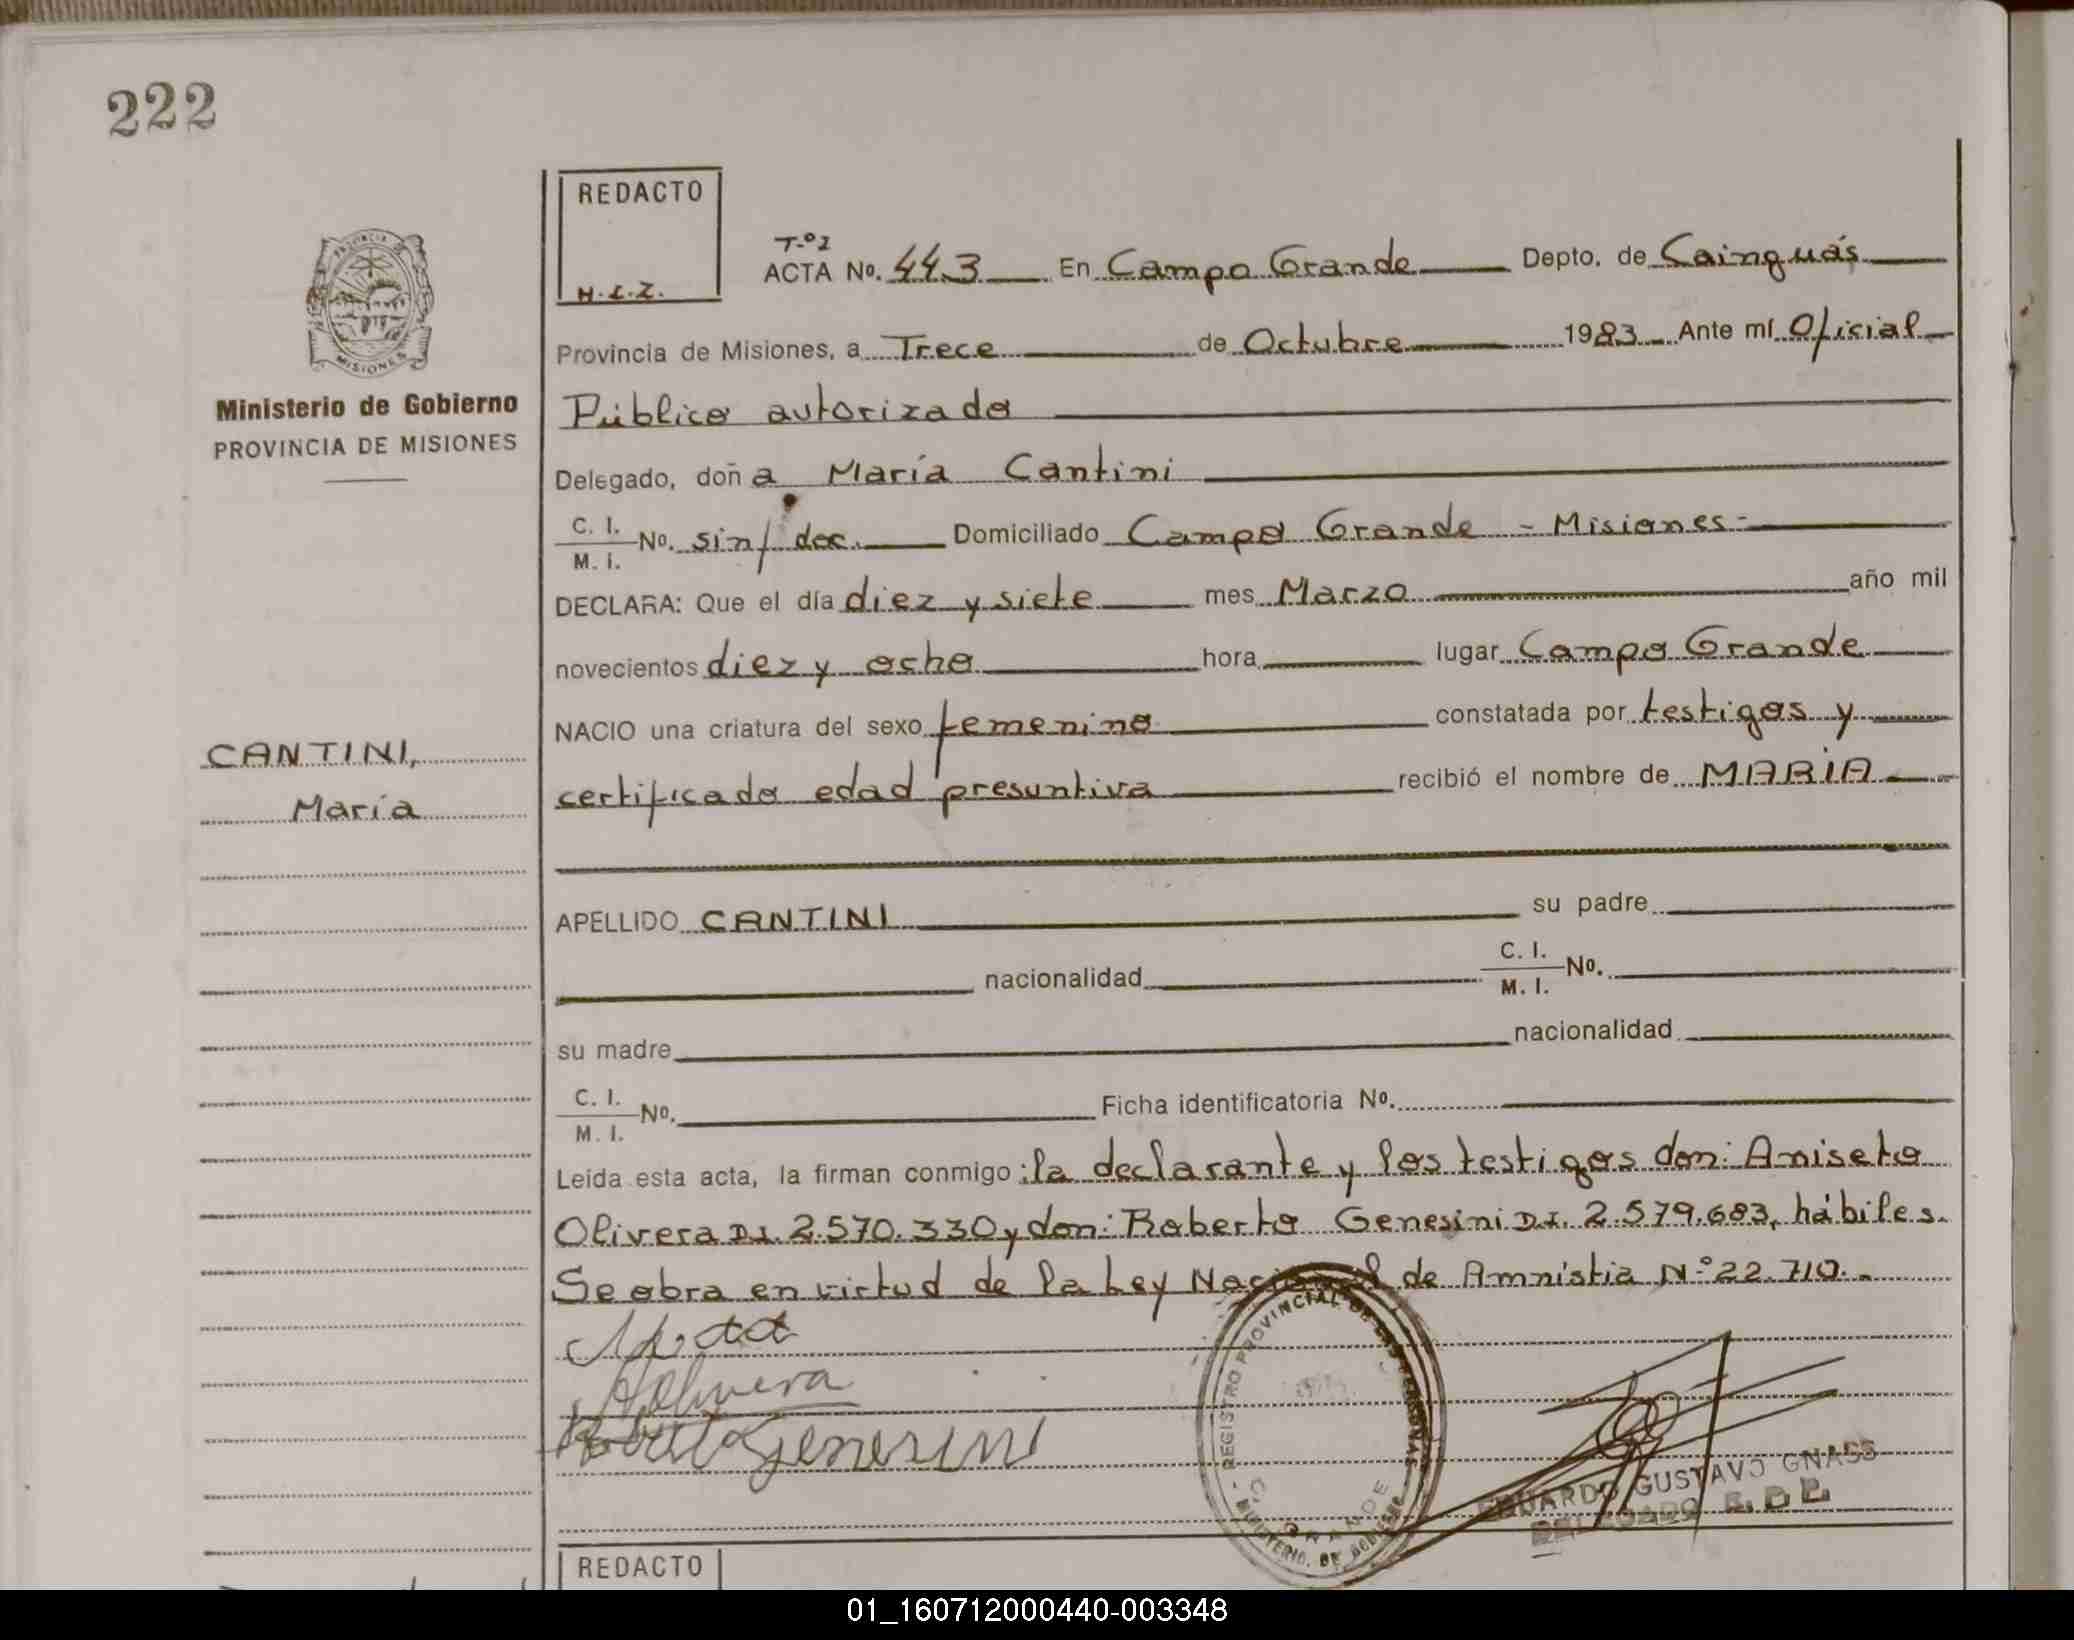 222
REDACTO
H.L.Z.
PROVINCIA DE MISIONES
T-º2
ACTA No. 443 En Campo Grande Depto. de Cainguás
Provincia de Misiones, a Trece de Octubre 1983 Ante mí Oficial
Ministerio de Gobierno
PROVINCIA DE MISIONES
Público autorizado
Delegado, doña María Cantini
C. I.
M. i. No. sin/doc. Domiciliado Campo Grande - Misiones -
DECLARA: Que el día diez y siete mes Marzo año mil
novecientos diez y ocho hora lugar Campo Grande
NACIO una criatura del sexo femenino constatada por testigos y
CANTINI,
María
certificado edad presuntiva recibió el nombre de MARÍA
APELLIDO CANTINI su padre
nacionalidad C. I.
M. I. No.
su madre nacionalidad
C. I.
M. I. No. Ficha identificatoria No.
Leída esta acta, la firman conmigo: la declarante y los testigos don: Aniseto
Olivera D.I. 2.570.330 y don: Roberto Genesini D.I. 2.579.683, hábiles.
Se obra en virtud de la Ley Nacional de Amnistia N-º22.710.-
AOlivera
Roberto Genesini
REGISTRO PROVINCIAL DE LAS PERSONAS
GRANDE
MINISTERIO DE GOBIERNO
EDUARDO GUSTAVO GNASS
DELEGADO
REDACTO
01_160712000440-003348